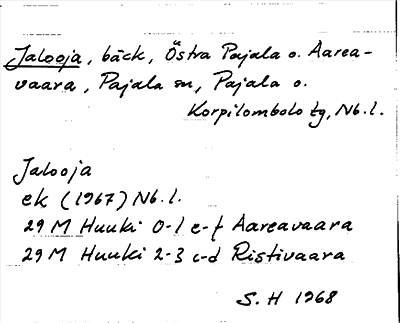 Jalooja, bäck, Östra Pajala o. Aarea-
vaara, Pajala sn, Pajala o.
Korpilombolo tg, Nb. l.
Jalooja
ek (1967) Nb. l.
29 M Huuki 0-1 e-f Aareavaara
29 M Huuki 2-3 c-d Ristivaara
S. H 1968